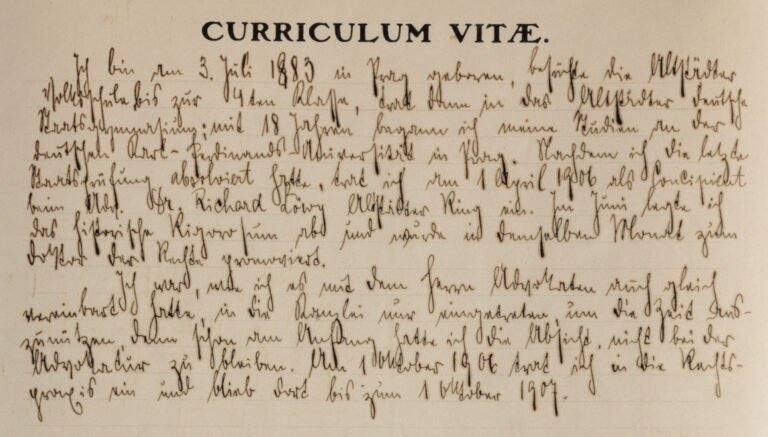 CURRICULUM VITÆ.
Ich bin am 3. Juli 1883 in Prag geboren, besuchte die Altstädter
Volksschule bis zur 4ten Klasse, trat dann in das Altstädter deutsche
Staatsgymnasium; mit 18 Jahren begann ich meine Studien an der
deutschen Karl-Ferdinands Universität in Prag. Nachdem ich die letzte
Staatsprüfung absolviert hatte, trat ich am 1 April 1906 als Concipient
beim Adv. Dr. Richard Löwy Altstädter Ring ein. Im Juni legte ich
das historische Rigorosum ab und wurde in demselben Monat zum
Doktor der Rechte promoviert.
Ich war, wie ich es mit dem Herrn Advokaten auch gleich
vereinbart hatte, in die Kanzlei nur eingetreten, um die Zeit aus-
zunützen, denn schon am Anfang hatte ich die Absicht, nicht bei der
Advokatur zu bleiben. Am 1 Oktober 1906 trat ich in die Rechts-
praxis ein und blieb dort bis zum 1 Oktober 1907.